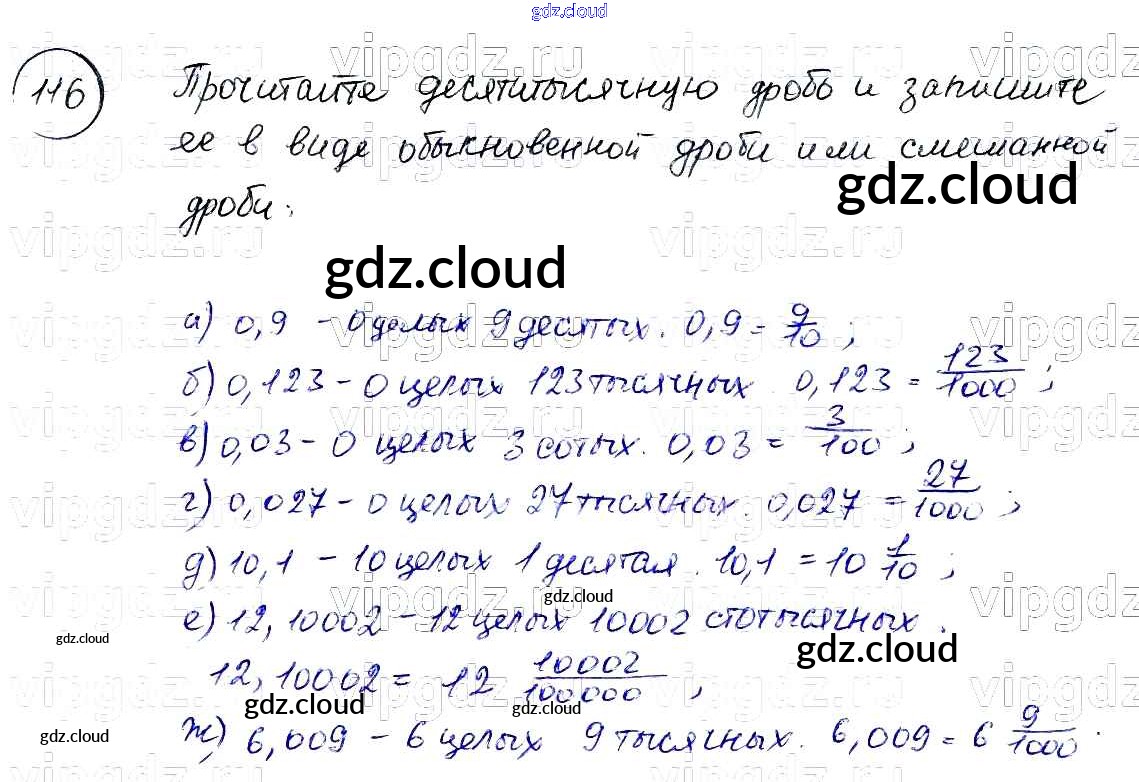 gdz.cloud
116 Прочитайте десятитысячную дробь и запишите
ее в виде обыкновенной дроби или смешанной
gdz.cloud
дроби:
gdz.cloud
а) 0,9 – 0 целых 9 десятых. 0,9 = 9/10 ;
б) 0,123 – 0 целых 123 тысячных. 0,123 = 123/1000 ;
в) 0,03 – 0 целых 3 сотых. 0,03 = 3/100 ;
г) 0,027 – 0 целых 27 тысячных. 0,027 = 27/1000 ;
д) 10,1 – 10 целых 1 десятая. 10,1 = 10 1/10 ;
gdz.cloud
е) 12,10002 – 12 целых 10002 стотысячных.
gdz.cloud
gdz.cloud
12,10002 = 12 10002/100000 ;
gdz.cloud
gdz.cloud
ж) 6,009 – 6 целых 9 тысячных. 6,009 = 6 9/1000 .
gdz.cloud
vipgdz.ru